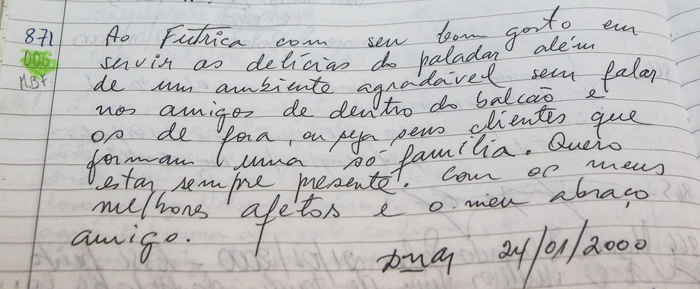 871 Ao Futrica com seu bom gosto em
DOS servir as delícias do paladar além
MBX de um ambiente agradável sem falar
nos amigos de dentro do balcão e
os de fora, ou seja seus clientes que
formam uma só família. Quero
estar sempre presente. Com os meus
melhores afetos e o meu abraço
amigo.
24/01/2000